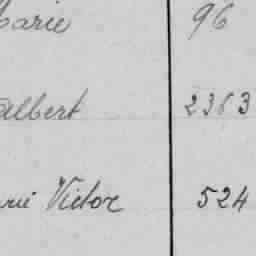 Marie 96
Albert 2363
Marie Victor 524